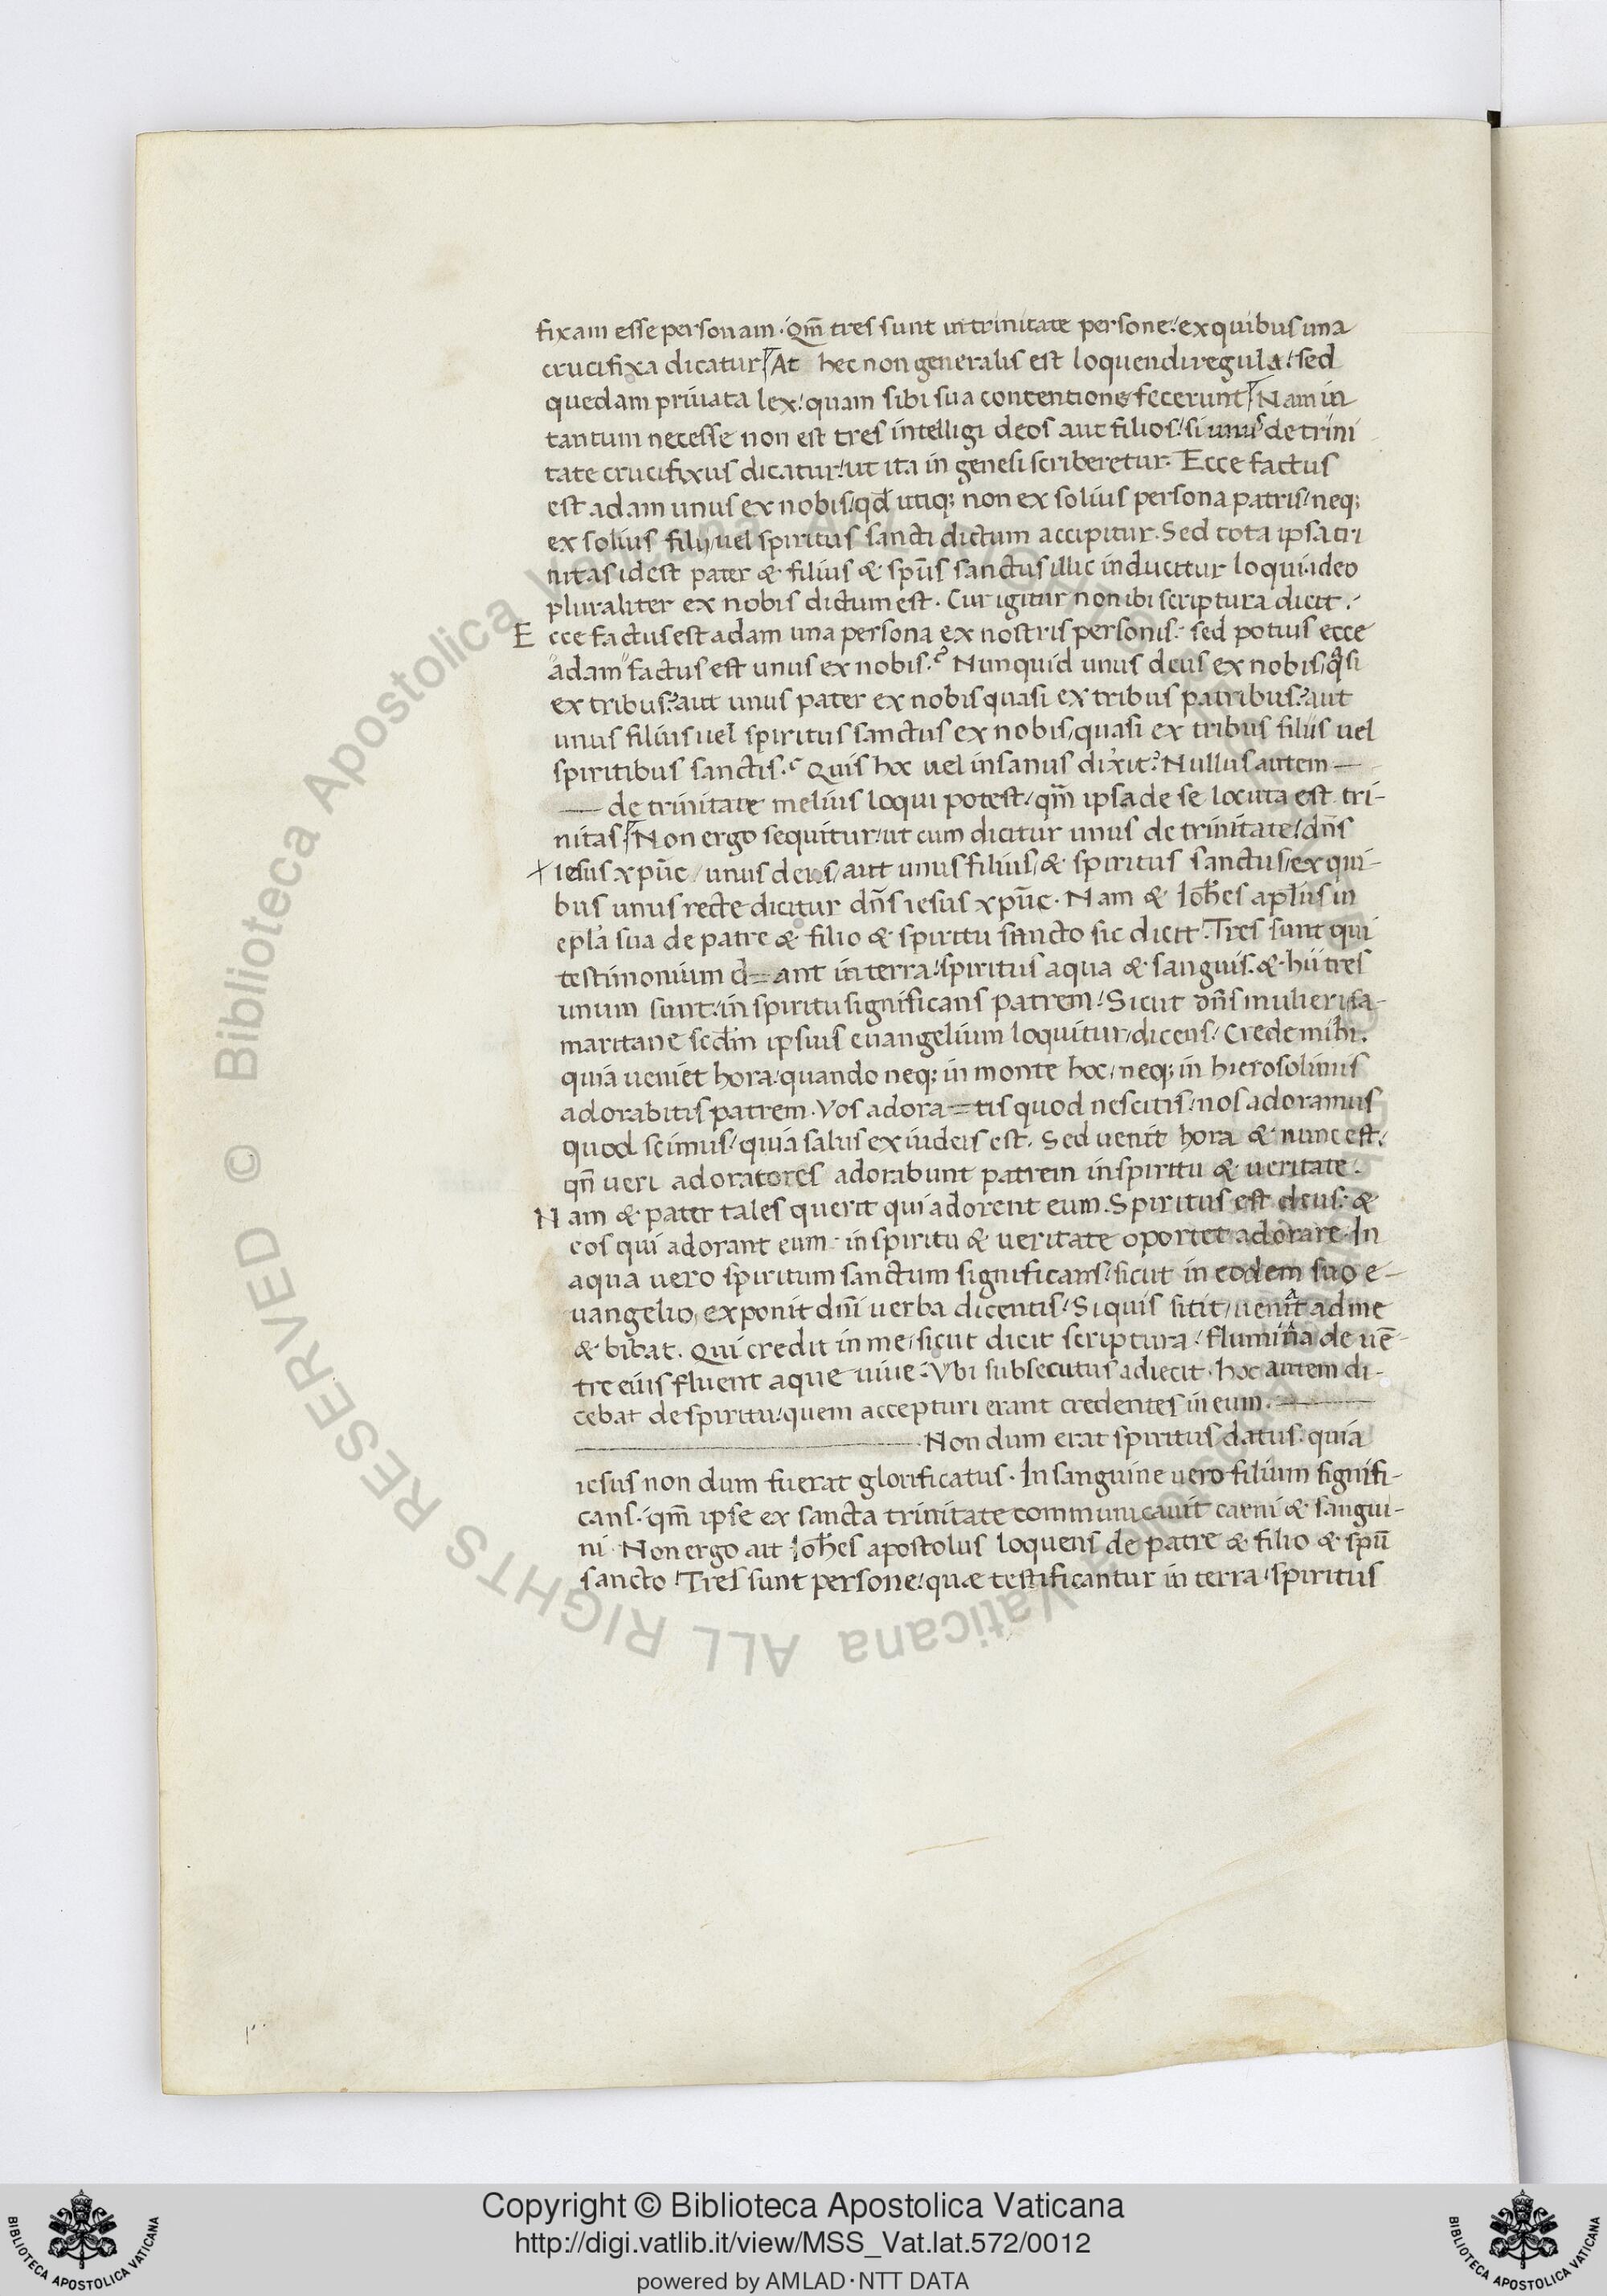 fixam esse personam. qm̄ tres sunt in trinitate persone: ex quibus una
crucifixa dicatur At hec non generalis est loquendi regula: sed
quedam privata lex: quam sibi sua contentione fecerunt Nam in
tantum necesse non est tres intelligi deos aut filios: si unus de trini
tate crucifixus dicatur: ut ita in genesi scriberetur. Ecce factus
est adam unus ex nobis: qd̄ utiq; non ex solius persona patris: neq;
ex solius filij uel spiritus sancti dictum accipitur. Sed tota ipsa tri
nitas id est pater & filius & spūs sanctus illic inducitur loqui. ideo
pluraliter ex nobis dictum est. Cur igitur non ibi scriptura dicit:
Ecce factus est adam una persona ex nostris personis: sed potius ecce
adam factus est unus ex nobis? Nunquid unus deus ex nobis qᵃsi
ex tribus? aut unus pater ex nobis quasi ex tribus patribus? aut
unus filius uel spiritus sanctus ex nobis, quasi ex tribus filiis uel
spiritibus sanctis? Quis hoc uel insanus dixit? Nullus autem —
— de trinitate melius loqui potest, qm̄ ipsa de se locuta est tri-
nitas Non ergo sequitur: ut cum dicitur unus de trinitate: dn̄s
+ iesus xpūc, unus deus, aut unus filius, & spiritus sanctus, ex qui-
bus unus recte dicitur dn̄s iesus xpūc. Nam & Joh̄es apl̄us in
epl̄a sua de patre & filio & spiritu sancto sic dicit: Tres sunt qui
testimonium d=ant in terra: spiritus aqua & sanguis. & hii tres
unum sunt: in spiritu significans patrem: Sicut dn̄s mulieri sa-
maritane sed̄m ipsius euangelium loquitur, dicens: Crede mihi.
quia ueniet hora: quando neq; in monte hoc, neq; in hierosolimis
adorabitis patrem. Vos adora=tis quod nescitis: nos adoramus
quod scimus: quia salus ex iudeis est. Sed uenit hora & nunc est:
qn̄ ueri adoratores adorabunt patrem in spiritu & ueritate.
Nam & pater tales querit qui adorent eum. Spiritus est deus: &
eos qui adorant eum: in spiritu & ueritate oportet adorare. In
aqua uero spiritum sanctum significans: sicut in eodem suo e-
uangelio, exponit dn̄i uerba dicentis: Si quis sitit, ueniat ad me
& bibat. Qui credit in me, sicut dicit scriptura: flumina de uē-
tre eius fluent aque uiue: Vbi subsecutus adiecit. hoc autem di-
cebat de spiritu: quem accepturi erant credentes in eum. —
— . Non dum erat spiritus datus: quia
iesus non dum fuerat glorificatus. In sanguine uero filium signifi-
cans: qm̄ ipse ex sancta trinitate communicauit carni & sangui-
ni. Non ergo ait Joh̄es apostolus loquens de patre & filio & spū
sancto: Tres sunt persone: quæ testificantur in terra: spiritus
Copyright © Biblioteca Apostolica Vaticana
http://digi.vatlib.it/view/MSS_Vat.lat.572/0012
powered by AMLAD·NTT DATA
BIBLIOTECA APOSTOLICA VATICANA
BIBLIOTECA APOSTOLICA VATICANA
© Biblioteca Apostolica Vaticana ALL RIGHTS RESERVED